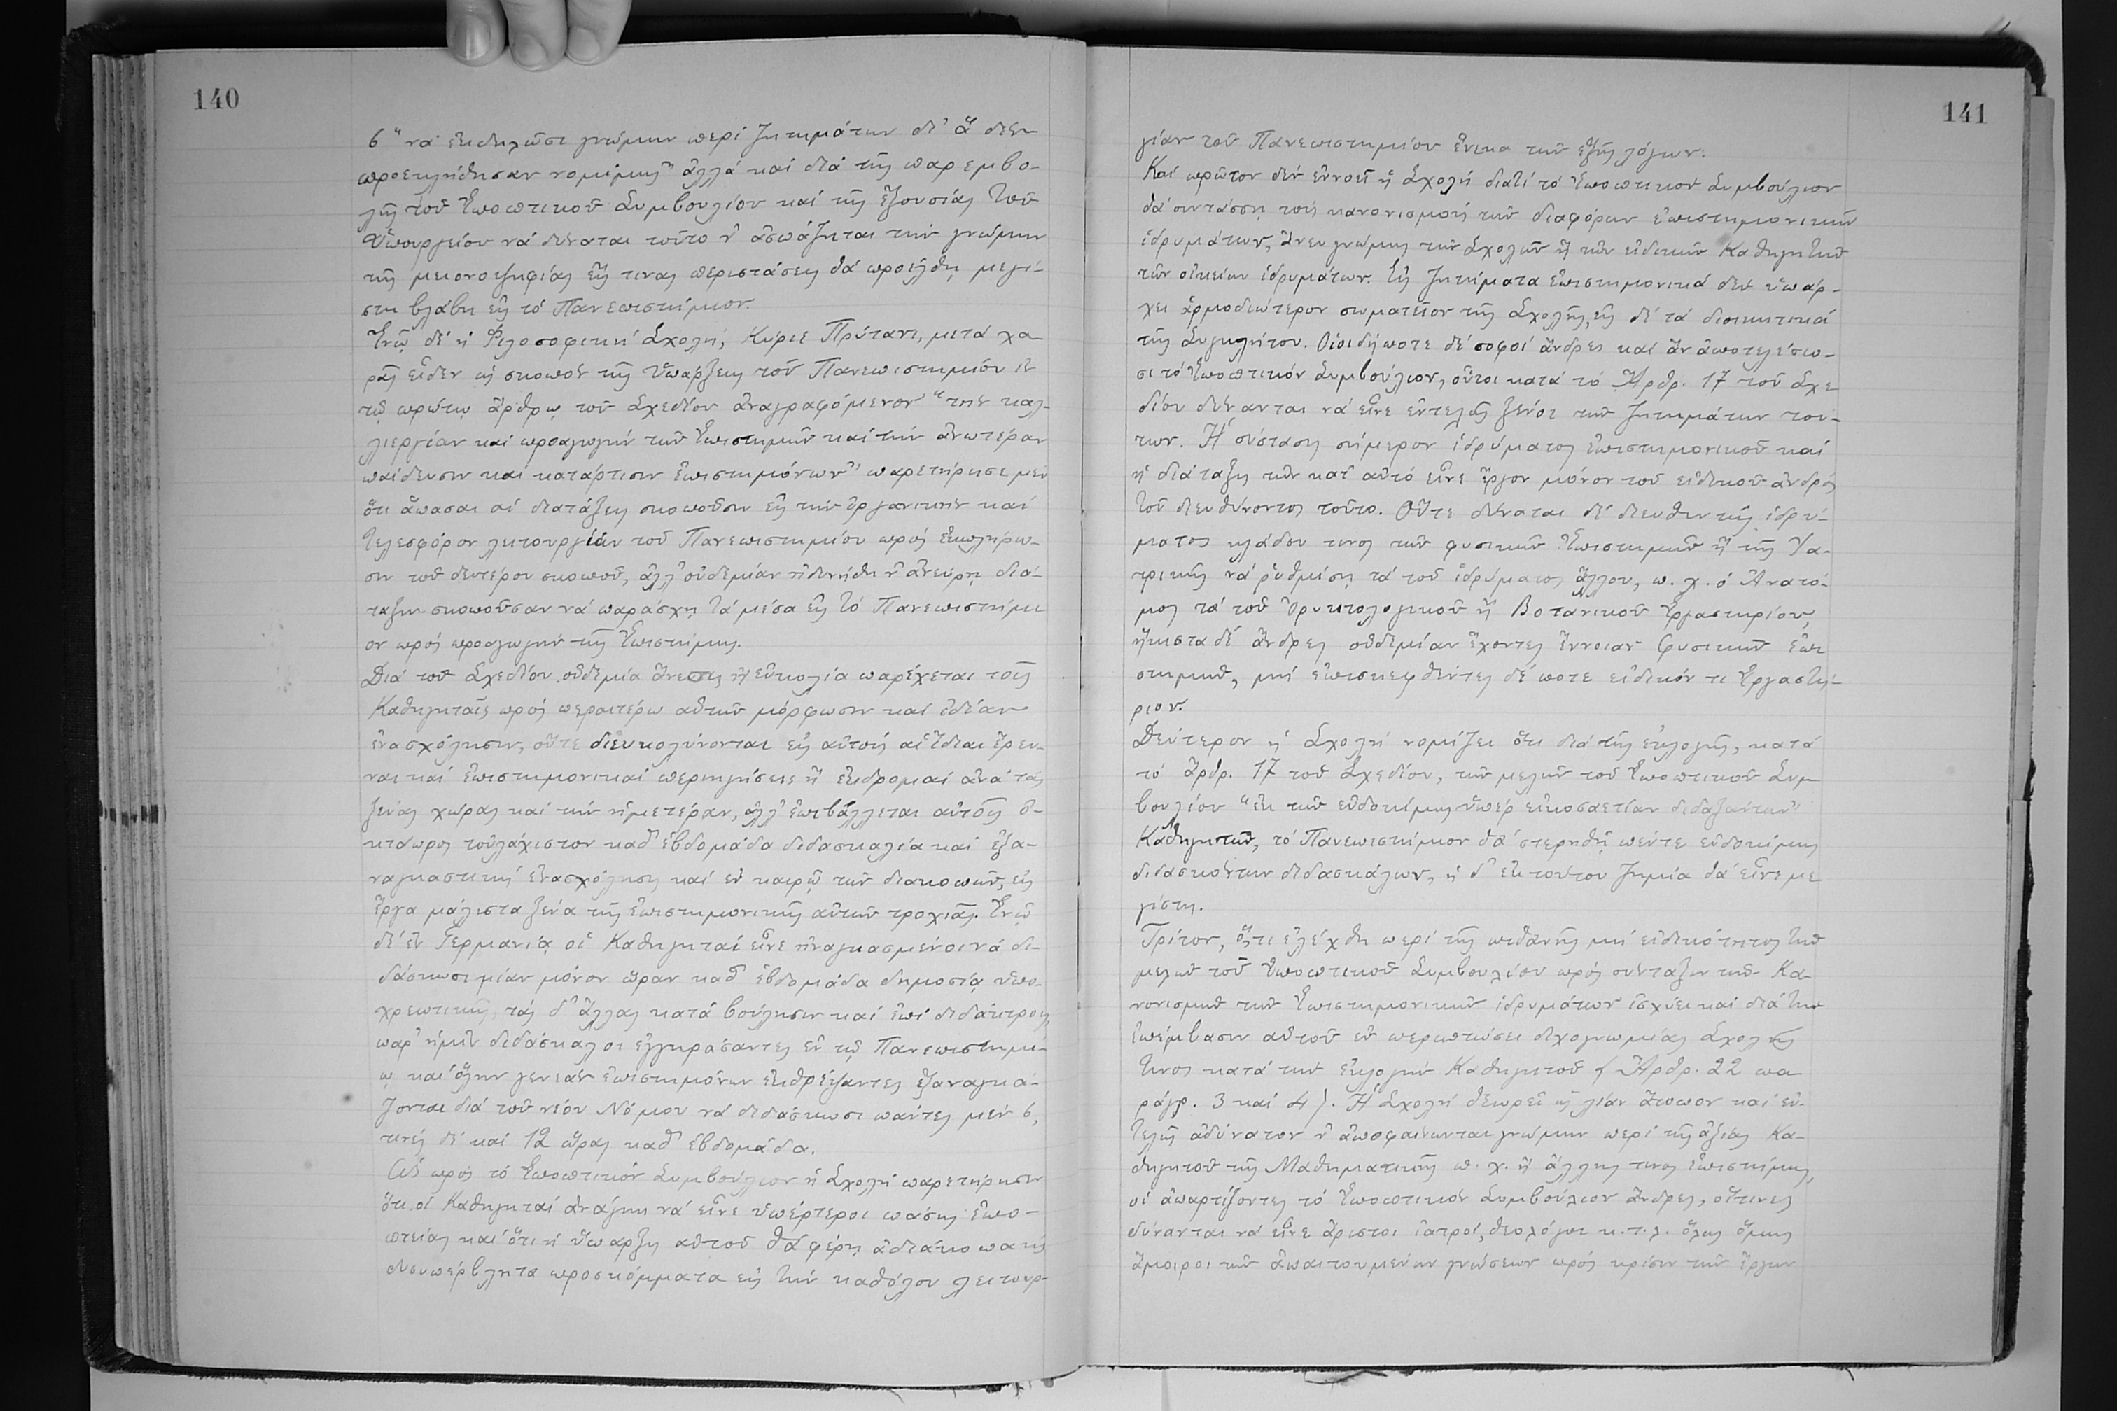 140
6 " νά ἐκδηλῶσι γνώμην περί ζητημάτων δι' ἅ δέν
προεκλήθησαν νομίμως" ἀλλά καί διά τῆς παρεμβο-
λῆς τοῦ Ἐποπτικοῦ Συμβουλίου καί τῆς ἐξουσίας τοῦ
Ὑπουργείου νά δύναται τοῦτο ν' ἀσπάζηται τήν γνώμην
τῆς μειονοψηφίας εἴς τινας περιστάσεις θά προέλθῃ μεγί-
στη βλάβη εἰς τό Πανεπιστήμιον.
Ἐνῷ δέ ἡ Φιλοσοφική Σχολή, Κύριε Πρύτανι, μετά χα-
ρᾶς εἶδεν ὡς σκοπόν τῆς ὑπάρξεως τοῦ Πανεπιστημίου ἐν
τῷ πρώτῳ ἄρθρῳ τοῦ Σχεδίου ἀναγραφόμενον "τήν καλ-
λιεργίαν καί προαγωγήν τῶν Ἐπιστημῶν καί τήν ἀνωτέραν
παίδευσιν καί κατάρτισιν Ἐπιστημόνων" παρετήρησε μέν
ὅτι ἅπασαι αἱ διατάξεις σκοποῦσιν εἰς τήν ὀργανικήν καί
τελεσφόρον λειτουργίαν τοῦ Πανεπιστημίου πρός ἐκπλήρω-
σιν τοῦ δευτέρου σκοποῦ, ἀλλ' οὐδεμίαν ἠδυνήθη ν' ἀνεύρῃ διά-
ταξιν σκοποῦσαν νά παράσχῃ τά μέσα εἰς τό Πανεπιστήμι
ον πρός προαγωγήν τῆς Ἐπιστήμης.
Διά τοῦ Σχεδίου οὐδεμία ἄνεσις ἤ εὐκολία παρέχεται τοῖς
Καθηγηταῖς πρός περαιτέρω αὐτῶν μόρφωσιν καί ἰδίαν
ἐνασχόλησιν, οὔτε διευκολύνονται εἰς αὐτούς αἱ ἴδιαι ἔρευ-
ναι καί ἐπιστημονικαί περιηγήσεις ἤ ἐκδρομαί ἀνά τάς
ξένας χώρας καί τήν ἡμετέραν, ἀλλ' ἐπιβάλλεται αὐτοῖς ὀ-
κτάωρος τοὐλάχιστον καθ' ἑβδομάδα διδασκαλία καί ἐξα-
ναγκαστική ἐνασχόλησις καί ἐν καιρῷ τῶν διακοπῶν, εἰς
ἔργα μάλιστα ξένα τῆς ἐπιστημονικῆς αὐτῶν τροχιᾶς. Ἐνῷ
δέ ἐν Γερμανίᾳ οἱ Καθηγηταί εἶνε ἠναγκασμένοι νά δι-
δάσκωσι μίαν μόνον ὥραν καθ' ἑβδομάδα δημοσίᾳ ὑπο-
χρεωτικῶς, τάς δ' ἄλλας κατά βούλησιν καί ἐπί διδάκτροις,
παρ' ἡμῖν διδάσκαλοι ἐγγηράσαντες ἐν τῷ Πανεπιστημί-
ῳ καί ὅλην γενεάν ἐπιστημόνων ἐκθρέψαντες ἐξαναγκά-
ζονται διά τοῦ νέου Νόμου νά διδάσκωσι πάντες μέν 6,
τινές δέ καί 12 ὥρας καθ' ἑβδομάδα.
Ὡς πρός τό Ἐποπτικόν Συμβούλιον ἡ Σχολή παρετήρησεν
ὅτι οἱ Καθηγηταί ἀνάγκη νά εἶνε ὑπέρτεροι πάσης ἐπο-
πτείας καί ὅτι ἡ ὕπαρξις αὐτοῦ θά φέρῃ ἀδιακόπως
ἀνυπέρβλητα προσκόμματα εἰς τήν καθόλου λειτουρ-
141
γίαν τοῦ Πανεπιστημίου ἕνεκα τῶν ἑξῆς λόγων.
Καί πρῶτον δέν ἐννοεῖ ἡ Σχολή διατί τό Ἐποπτικόν Συμβούλιον
θά συντάσσῃ τούς κανονισμούς τῶν διαφόρων ἐπιστημονικῶν
ἱδρυμάτων, ἄνευ γνώμης τῶν Σχολῶν ἤ τῶν εἰδικῶν Καθηγητῶν
τῶν οἰκείων ἱδρυμάτων. Εἰς ζητήματα ἐπιστημονικά δέν ὑπάρ-
χει ἁρμοδιώτερον σωματεῖον τῆς Σχολῆς, εἰς δέ τά διοικητικά
τῆς Συγκλήτου. Οἱοιδήποτε δέ σοφοί ἄνδρες καί ἄν ἀποτελέσω-
σι τό Ἐποπτικόν Συμβούλιον, οὗτοι κατά τό Ἄρθρ. 17 τοῦ Σχε
δίου δύνανται νά εἶνε ἐντελῶς ξένοι τῶν ζητημάτων τού-
των. Ἡ σύστασις σήμερον ἱδρύματος ἐπιστημονικοῦ καί
ἡ διάταξις τῶν κατ' αὐτό εἶνε ἔργον μόνον τοῦ εἰδικοῦ ἀνδρός
τοῦ διευθύνοντος τοῦτο. Οὔτε δύναται δέ διευθυντής ἱδρύ-
ματος κλάδου τινός τῶν φυσικῶν Ἐπιστημῶν ἤ τῆς Ἰα-
τρικῆς νά ῥυθμίσῃ τά τοῦ ἱδρύματος ἄλλου, π.χ. ὁ Ἀνατό-
μος τά τοῦ Ὀρυκτολογικοῦ ἤ Βοτανικοῦ Ἐργαστηρίου,
ἥκιστα δέ ἄνδρες οὐδεμίαν ἔχοντες ἔννοιαν Φυσικῶν Ἐπι
στημῶν, μή ἐπισκεφθέντες δέ ποτε εἰδικόν τι Ἐργαστή-
ριον.
Δεύτερον ἡ Σχολή νομίζει ὅτι διά τῆς ἐκλογῆς, κατά
τό ἄρθρ. 17 τοῦ Σχεδίου, τῶν μελῶν τοῦ Ἐποπτικοῦ Συμ
βουλίου "ἐκ τῶν εὐδοκίμως ὑπέρ εἰκοσαετίαν διδαξάντων"
Καθηγητῶν, τό Πανεπιστήμιον θά στερηθῇ πέντε εὐδοκίμως
διδασκόντων διδασκάλων, ἡ δ' ἐκ τούτου ζημία θά εἶνε με
γίστη.
Τρίτον, ὅ,τι ἐλέχθη περί τῆς πιθανῆς μή εἰδικότητος τῶν
μελῶν τοῦ Ἐποπτικοῦ Συμβουλίου πρός σύνταξιν τῶν Κα-
νονισμῶν τῶν Ἐπιστημονικῶν ἱδρυμάτων ἰσχύει καί διά τήν
ἐπέμβασιν αὐτοῦ ἐν περιπτώσει διχογνωμίας Σχολῆς
τινος κατά τήν ἐκλογήν Καθηγητοῦ (Ἄρθρ. 22 πα
ράγρ. 3 καί 4). Ἡ Σχολή θεωρεῖ ὡς λίαν ἄτοπον καί ἐν-
τελῶς ἀδύνατον ν' ἀποφαίνωνται γνώμην περί τῆς ἀξίας Κα-
θηγητοῦ τῆς Μαθηματικῆς π.χ. ἤ ἄλλης τινός ἐπιστήμης,
οἱ ἀπαρτίζοντες τό Ἐποπτικόν Συμβούλιον ἄνδρες, οἵτινες
δύνανται νά εἶνε ἄριστοι ἰατροί, θεολόγοι κ.τ.λ. ὅλως ὅμως
ἄμοιροι τῶν ἀπαιτουμένων γνώσεων πρός κρίσιν τῶν ἔργων